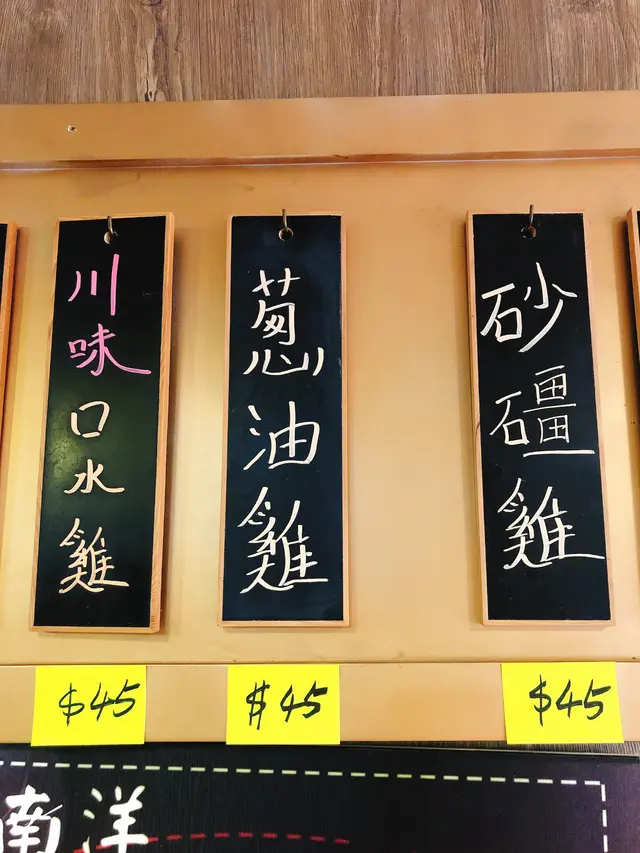 川味口水雞
蔥油雞
砂礓雞
$45
$45
$45
南洋